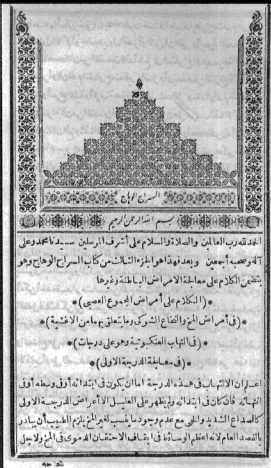 السراج الوهاج
بسم الله الرحمن الرحيم
الحمد لله رب العالمين والصلاة والسلام على أشرف المرسلين سيدنا محمد وعلى
آله وصحبه أجمعين وبعد فهذا هو الجزء الثالث من كتاب السراج الوهاج وهو
يتضمن الكلام على معالجة الامراض الباطنة وغيرها
*(الكلام على أمراض المجموع العصبى)*
*(فى أمراض المخ والنخاع الشوكى وما يتعلق بهما من الاغشية)*
*(فى التهاب العنكبوتية وهو على درجات)*
*(فى معالجة الدرجة الاولى)*
اعلم ان الالتهاب فى هذه الدرجة اما ان يكون فى ابتدائه أو فى وسطه أو فى
انتهائه فاذا كان فى ابتدائه ولم يظهر على العليل الا أعراض الدرجة الاولى
كالصداع الشديد والحمى مع عدم وجود ما يغيب المخ يلزم الطبيب أن يبادر
بالفصد العام لانه أعظم الوسائط فى ايقاف الاحتقان الدموى فى المخ ولاجل